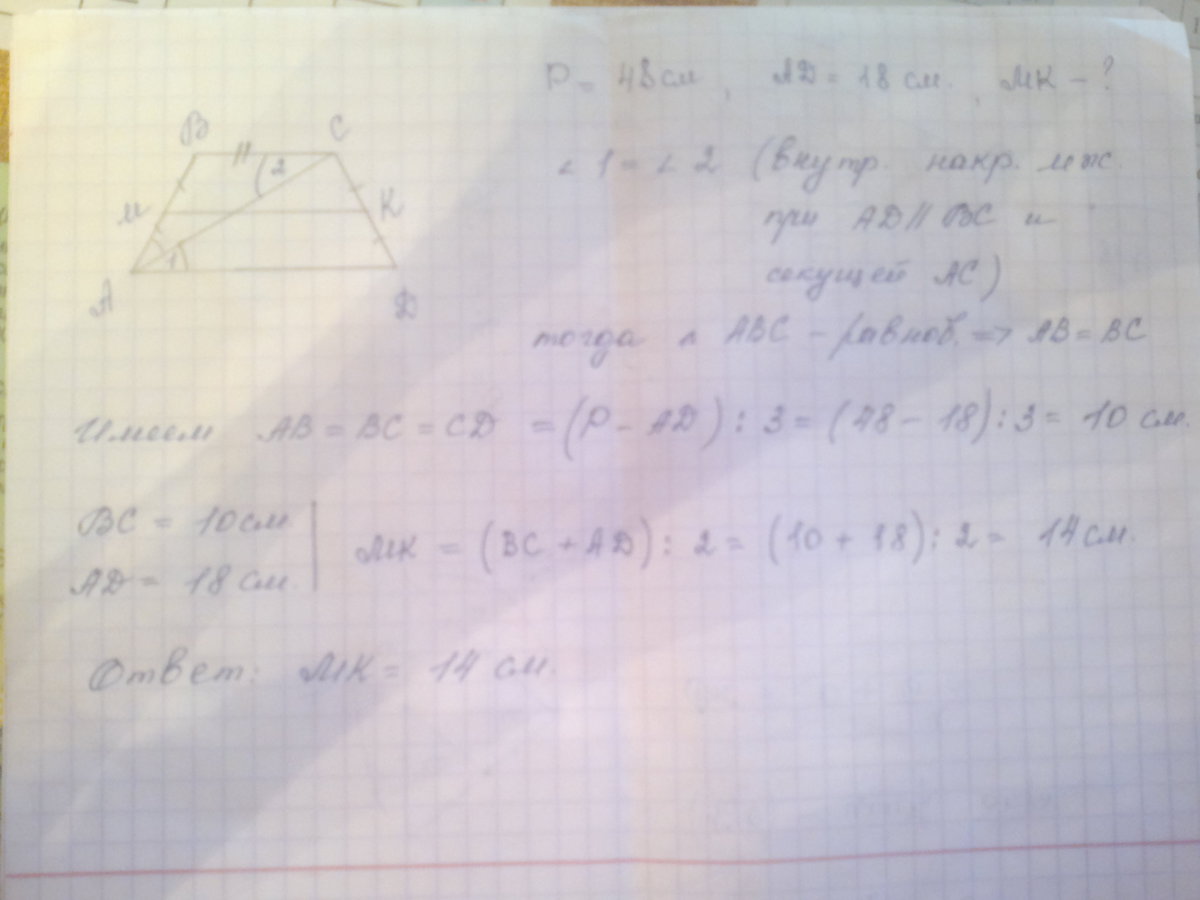 P = 48 см, AD = 18 см., МК - ?
B C
2
М К
1
A D
∠1 = ∠2 (внутр. накр. леж.
при AD || BC и
секущей AC)
тогда △ ABC - равноб. => AB = BC
Имеем AB = BC = CD = (P - AD) : 3 = (48 - 18) : 3 = 10 см.
BC = 10 см
AD = 18 см.
МК = (BC + AD) : 2 = (10 + 18) : 2 = 14 см.
Ответ: МК = 14 см.